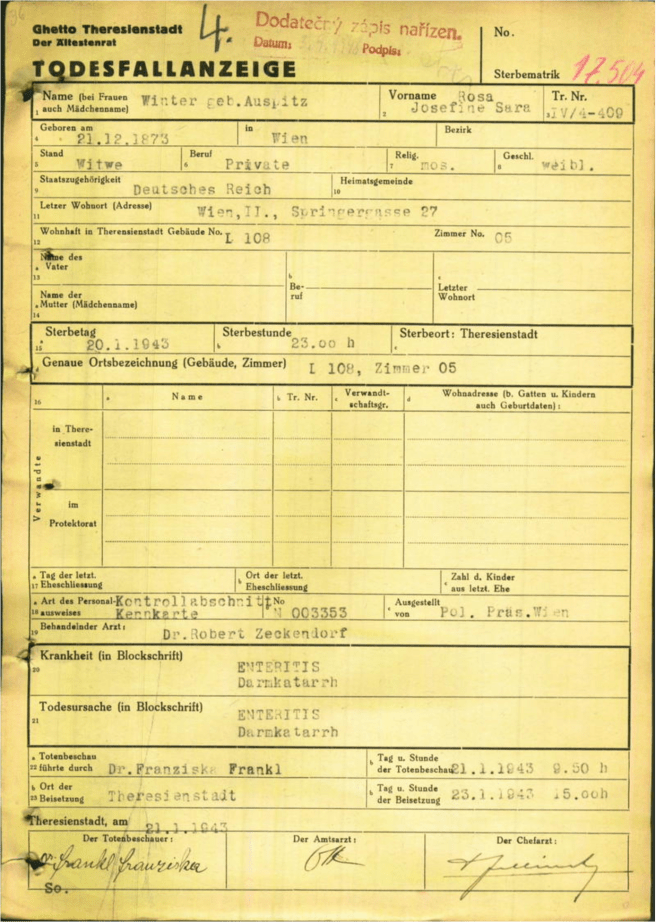 Ghetto Theresienstadt
Der Ältestenrat
TODESFALLANZEIGE
4.
Dodatečný zápis nařízen.
Datum: Podpis:
No.
Sterbematrik 17.504
1 Name (bei Frauen auch Mädchenname) Winter geb.Auspitz
2 Vorname Rosa Josefine Sara
3 Tr. Nr. IV/4-409
4 Geboren am 21.12.1873 in Wien Bezirk
5 Stand Witwe
6 Beruf Private
7 Relig. mos.
8 Geschl. weibl.
9 Staatszugehörigkeit Deutsches Reich
10 Heimatsgemeinde
11 Letzer Wohnort (Adresse) Wien,II., Springergasse 27
12 Wohnhaft in Theresienstadt Gebäude No. L 108 Zimmer No. 05
13 a Name des Vater
b Beruf
c Letzter Wohnort
14 a Name der Mutter (Mädchenname)
15 a Sterbetag 20.1.1943
b Sterbestunde 23.00 h
c Sterbeort: Theresienstadt
Genaue Ortsbezeichnung (Gebäude, Zimmer) L 108, Zimmer 05
16 a Name
b Tr. Nr.
c Verwandtschaftsgr.
d Wohnadresse (b. Gatten u. Kindern auch Geburtdaten):
Verwandte
in Theresienstadt
im Protektorat
17 a Tag der letzt. Eheschliessung
b Ort der letzt. Eheschliessung
c Zahl d. Kinder aus letzt. Ehe
18 a Art des Personalausweises Kontrollabschnitt Kennkarte
b No N 003353
c Ausgestellt von Pol. Präs.Wien
19 Behandelnder Arzt: Dr.Robert Zeckendorf
20 Krankheit (in Blockschrift) ENTERITIS
Darmkatarrh
21 Todesursache (in Blockschrift) ENTERITIS
Darmkatarrh
22 a Totenbeschau führte durch Dr.Franziska Frankl
b Tag u. Stunde der Totenbeschau 21.1.1943 9.50 h
23 a Ort der Beisetzung Theresienstadt
b Tag u. Stunde der Beisetzung 23.1.1943 15.00h
Theresienstadt, am 21.1.1943
Der Totenbeschauer:
Der Amtsarzt:
Der Chefarzt:
Dr. Frankl Franziska
So.